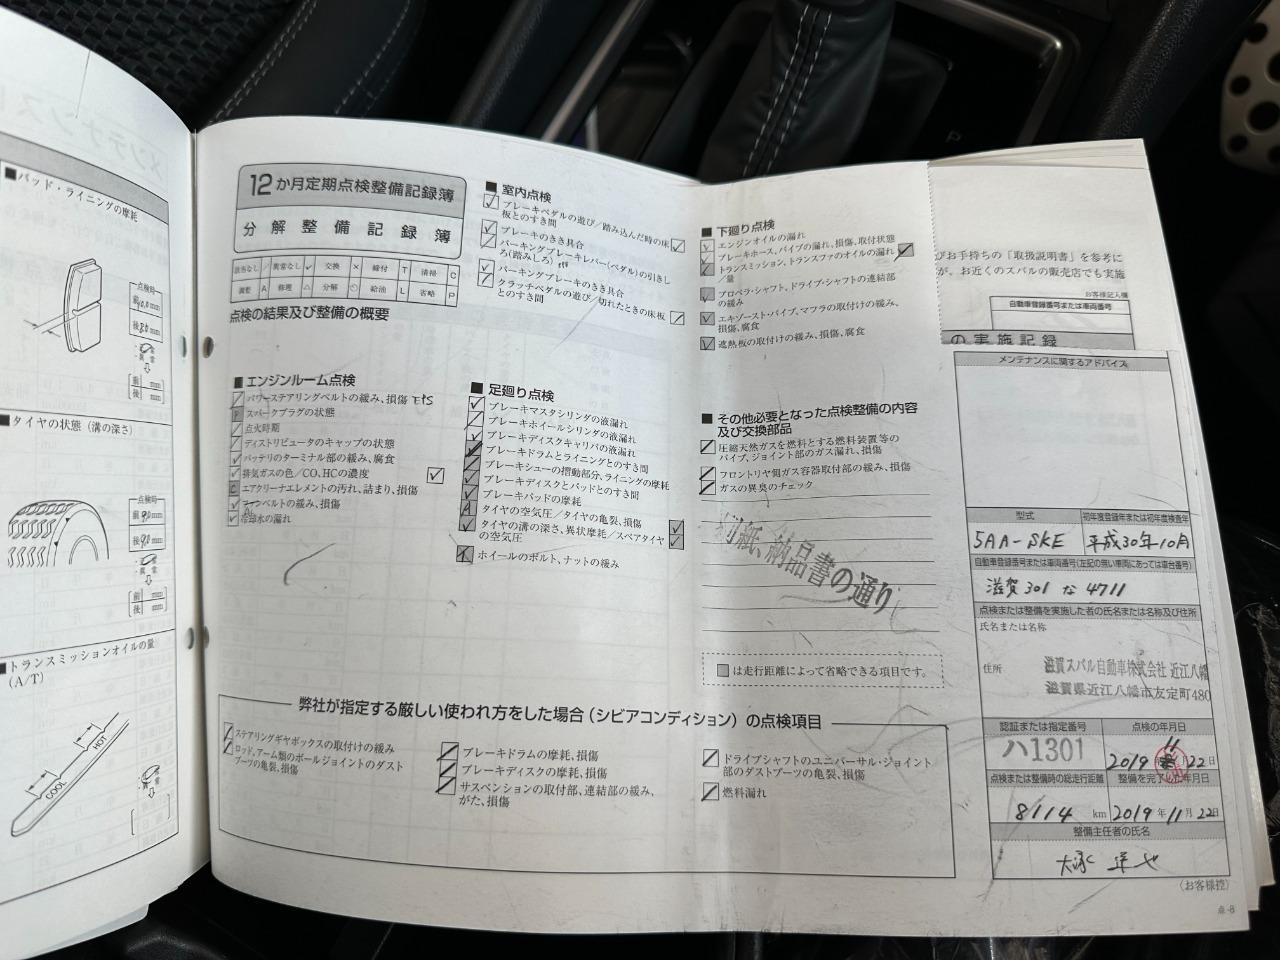 メンテナンス
■パッド・ライニングの摩耗
点検時
前 9.0 mm
後 8.0 mm
前 mm
後 mm
■タイヤの状態（溝の深さ）
点検時
前 9.0 mm
後 9.0 mm
前 mm
後 mm
■トランスミッションオイルの量
(A/T)
HOT
COOL
12か月定期点検整備記録簿
分解整備記録簿
該当なし ／ 異常なし ✓ 交換 × 締付 T 清掃 C
調整 A 修理 △ 分解 給油 L 省略 P
点検の結果及び整備の概要
■エンジンルーム点検
パワーステアリングベルトの緩み、損傷
P スパークプラグの状態
点火時期
ディストリビュータのキャップの状態
バッテリのターミナル部の緩み、腐食
排気ガスの色／CO、HCの濃度
C エアクリーナエレメントの汚れ、詰まり、損傷
ファンベルトの緩み、損傷
冷却水の漏れ
■室内点検
ブレーキペダルの遊び／踏み込んだ時の床
板とのすき間
ブレーキのきき具合
パーキングブレーキレバー(ペダル)の引きし
ろ(踏みしろ)
パーキングブレーキのきき具合
クラッチペダルの遊び／切れたときの床板
とのすき間
■足廻り点検
ブレーキマスタシリンダの液漏れ
ブレーキホイールシリンダの液漏れ
ブレーキディスクキャリパの液漏れ
ブレーキドラムとライニングとのすき間
ブレーキシューの摺動部分、ライニングの摩耗
ブレーキディスクとパッドとのすき間
ブレーキパッドの摩耗
A タイヤの空気圧／タイヤの亀裂、損傷
タイヤの溝の深さ、異状摩耗／スペアタイヤ
の空気圧
T ホイールのボルト、ナットの緩み
■下廻り点検
エンジンオイルの漏れ
ブレーキホース、パイプの漏れ、損傷、取付状態
トランスミッション、トランスファのオイルの漏れ
／量
プロペラ・シャフト、ドライブ・シャフトの連結部
の緩み
エキゾースト・パイプ、マフラの取付けの緩み、
損傷、腐食
遮熱板の取付けの緩み、損傷、腐食
■その他必要となった点検整備の内容
及び交換部品
圧縮天然ガスを燃料とする燃料装置等の
パイプ、ジョイント部のガス漏れ、損傷
フロントリヤ側ガス容器取付部の緩み、損傷
ガスの異臭のチェック
別紙、納品書の通り
は走行距離によって省略できる項目です。
弊社が指定する厳しい使われ方をした場合（シビアコンディション）の点検項目
ステアリングギヤボックスの取付けの緩み
ロッド、アーム類のボールジョイントのダスト
ブーツの亀裂、損傷
ブレーキドラムの摩耗、損傷
ブレーキディスクの摩耗、損傷
サスペンションの取付部、連結部の緩み、
がた、損傷
ドライブシャフトのユニバーサル・ジョイント
部のダストブーツの亀裂、損傷
燃料漏れ
びお手持ちの「取扱説明書」を参考に
が、お近くのスバルの販売店でも実施
お客様記入欄
自動車登録番号または車両番号
の実施記録
メンテナンスに関するアドバイス
型式 初年度登録年または初年度検査年
5AA-SKE 平成30年10月
自動車登録番号または車両番号(左記の無い車両にあっては車台番号)
滋賀 301 な 4711
点検または整備を実施した者の氏名または名称及び住所
氏名または名称
滋賀スバル自動車株式会社 近江八幡
住所
滋賀県近江八幡市友定町480
認証または指定番号 点検の年月日
ハ1301
2019 年 11 月 22 日
点検または整備時の総走行距離 整備を完了した年月日
8114 km 2019 年 11 月 22 日
整備主任者の氏名
(お客様控)
点-8